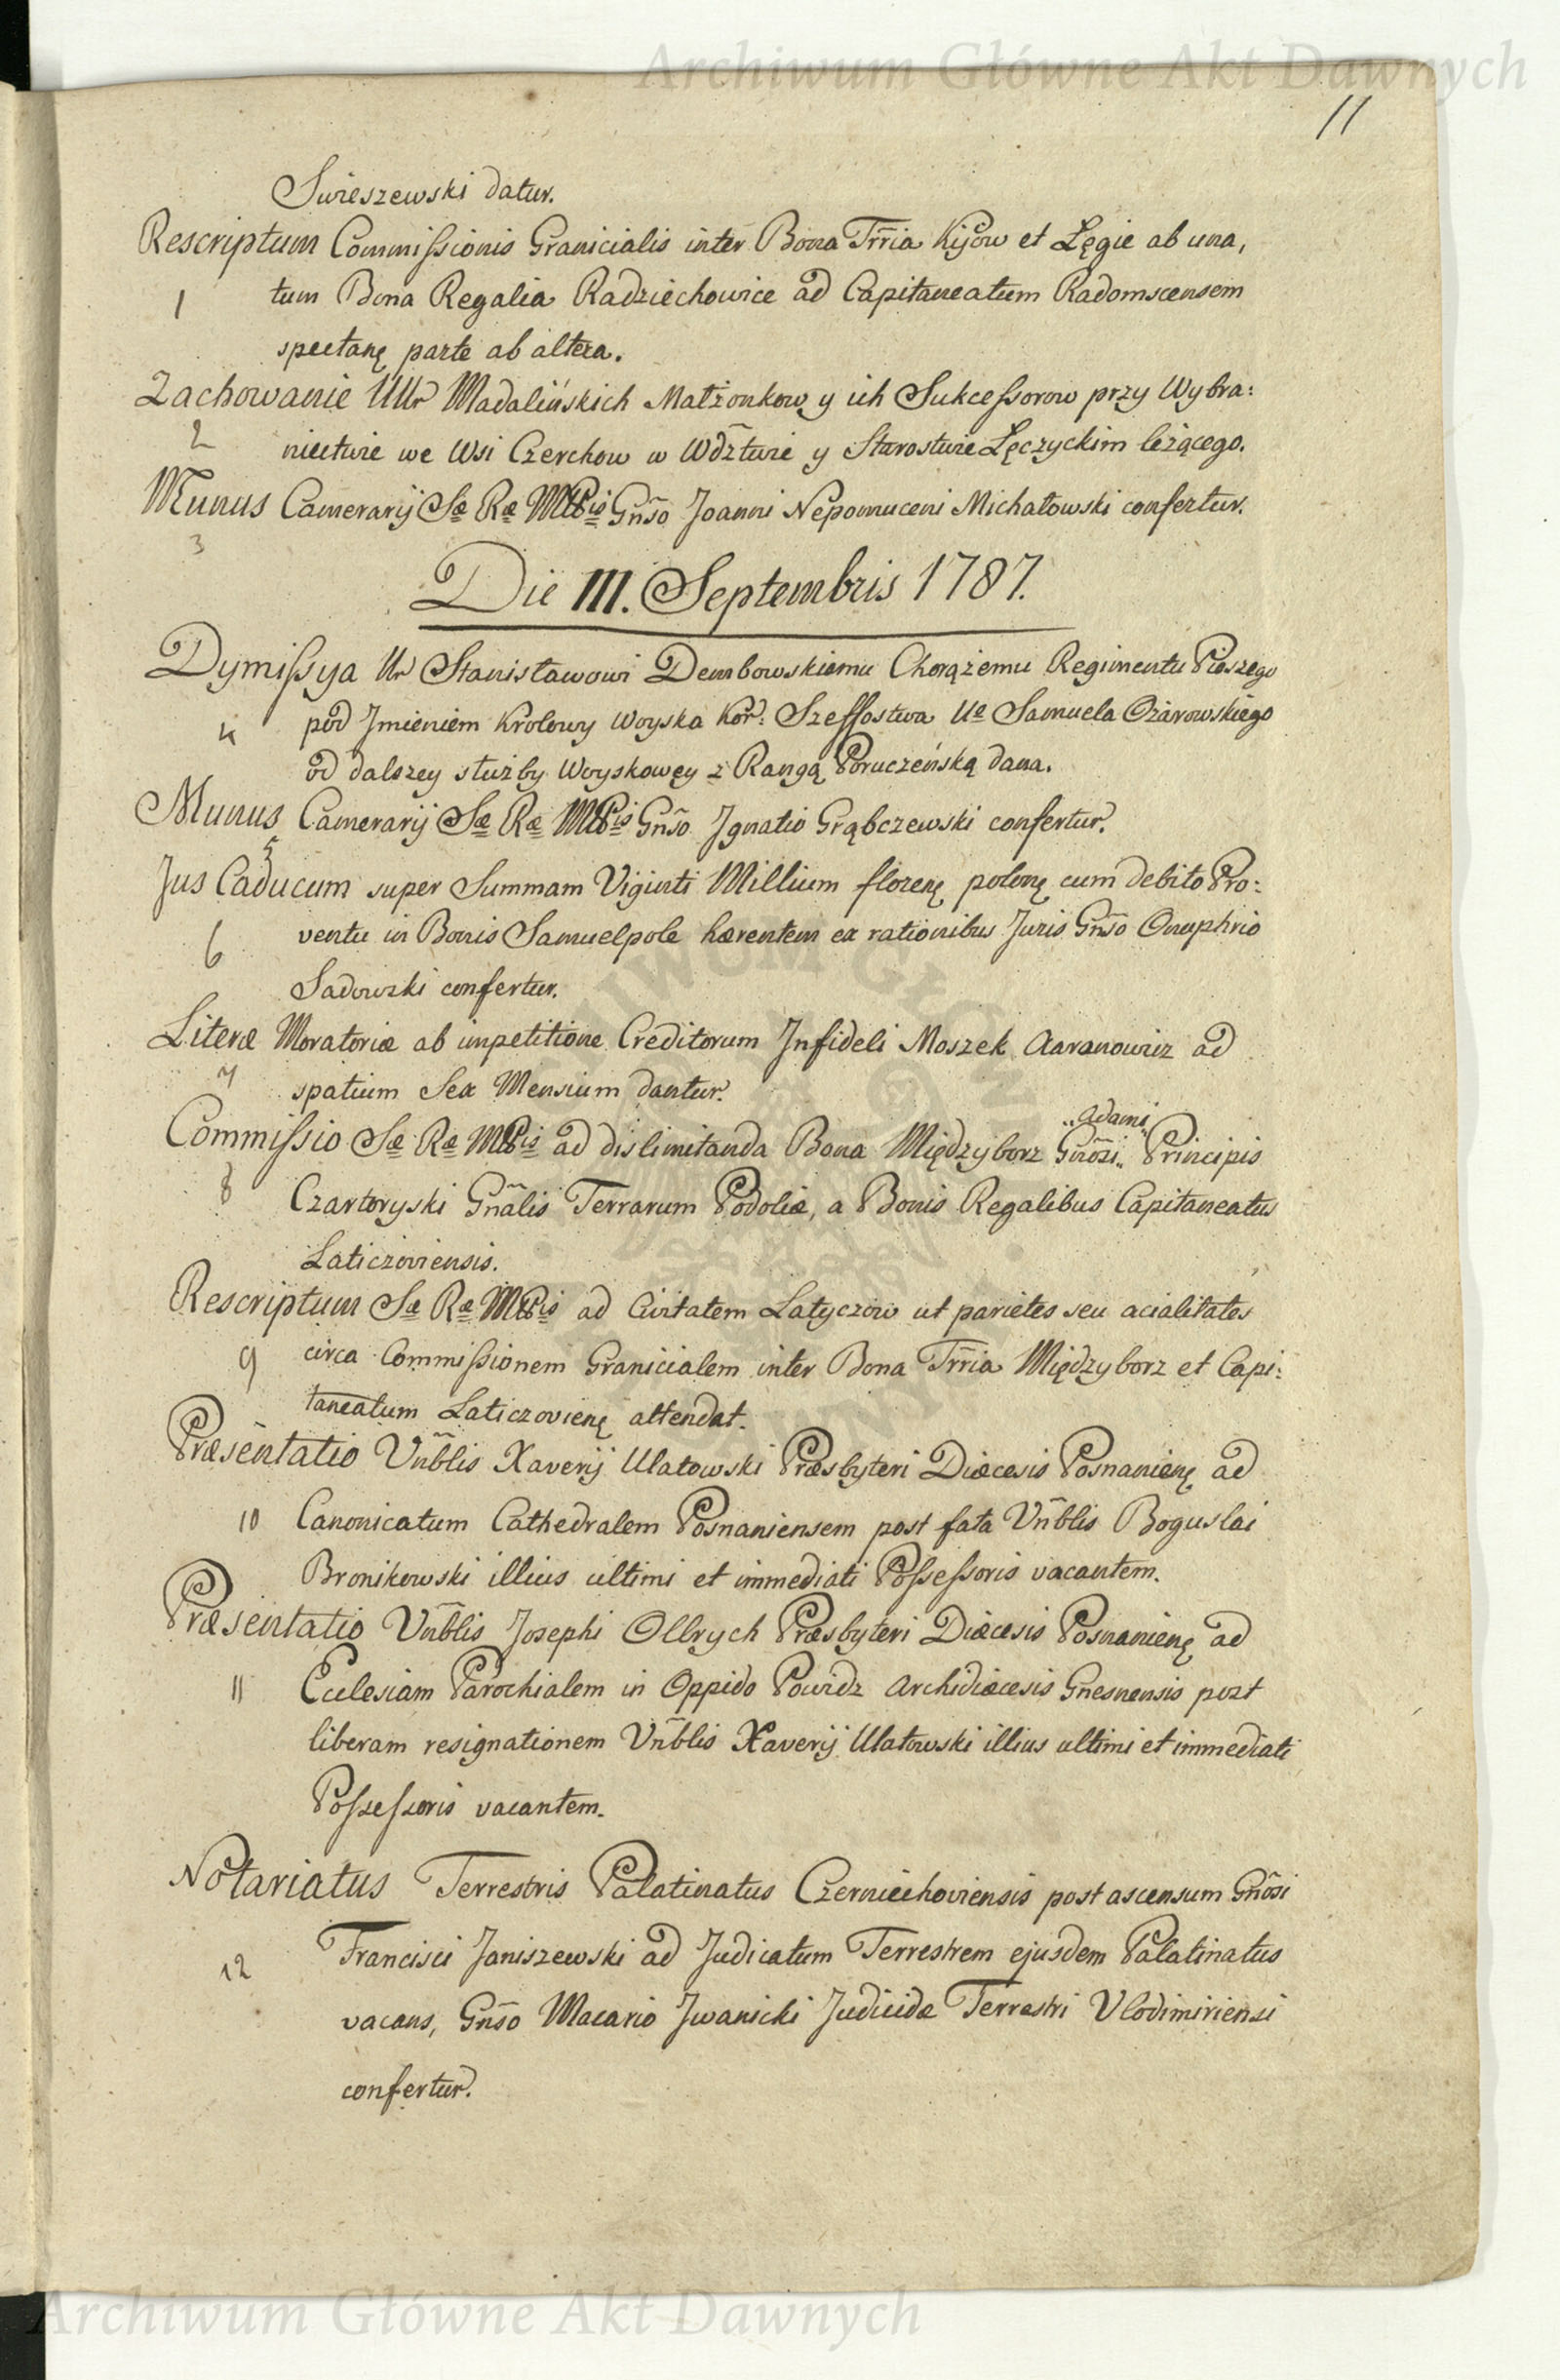 Archiwum Główne Akt Dawnych
11
Swieszewski datur.
Rescriptum Commissionis Granicialis inter Bona Trria Kijow et Łęgie ab una,
1 tum Bona Regalia Radziechowice ad Capitaneatum Radomscensem
spectanę parte ab altera.
Zachowanie UUr Madalińskich Małżonkow y ich Sukcessorow przy Wybra:
2 niectwie we Wsi Czerchow w Wdztwie y Starostwie Łęczyckim leżącego.
Munus Camerarij Sæ Ræ Mttis Gnso Joanni Nepomuceni Michałowski confertur.
3
Die III. Septembris 1787.
Dymissya Ur Stanisławowi Dembowskiemu Chorążemu Regimentu Pieszego
4 pod Jmieniem Krolowy Woyska Kor: Szeffostwa Ue Samuela Ożarowskiego
od dalszey służby Woyskowęy z Rangą Poruczeńską dana.
Munus Camerarij Sæ Ræ Mttis Gnso Jgnatio Grąbczewski confertur.
5
Jus Caducum super Summam Viginti Millium florenę polonę cum debito Pro:
6 ventu in Bonis Samuelpole hærentem ex rationibus Juris Gnso Onuphrio
Sadowski confertur.
Literæ Moratoriæ ab impetitione Creditorum Infideli Moszek Aaranowicz ad
7 spatium Sex Mensium dantur.
Adami
Commissio Sæ Ræ Mttis ad dislimitanda Bona Międzyborz Gnosi Principis
8 Czartoryski Gnalis Terrarum Podoliæ, a Bonis Regalibus Capitaneatus
Laticzoviensis.
Rescriptum Sæ Ræ Mttis ad Civitatem Latyczow ut parietes seu acialitates
9 circa Commissionem Granicialem inter Bona Trria Międzyborz et Capi:
taneatum Laticzovienę attendat.
Præsentatio Vnblis Xaverij Ulatowski Præsbyteri Diæcesis Posnanienę ad
10 Canonicatum Cathedralem Posnaniensem post fata Vnblis Boguslai
Bronikowski illius ultimi et immediati Possessoris vacantem.
Præsentatio Vnblis Josephi Olbrych Præsbyteri Diæcesis Posnanienę ad
11 Ecclesiam Parochialem in Oppido Powidz Archidiæcesis Gnesnensis post
liberam resignationem Vnblis Xaverij Ulatowski illius ultimi et immediati
Possessoris vacantem.
Notariatus Terrestris Palatinatus Czerniechoviensis post ascensum Gnosi
12 Francisci Janiszewski ad Judicatum Terrestrem ejusdem Palatinatus
vacans, Gnso Macario Jwanicki Judicidæ Terrestri Vlodimiriensi
confertur.
Archiwum Główne Akt Dawnych